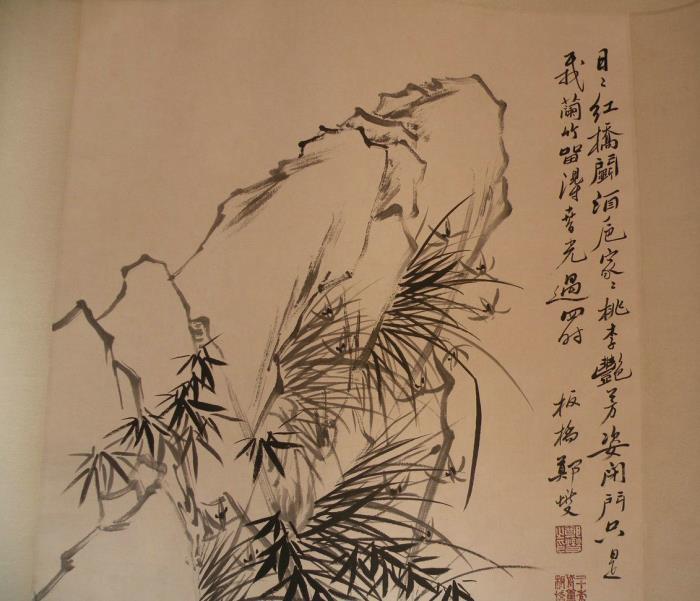 日〻红橋鬭酒卮家〻桃李艷芳姿闭門只是
我蘭竹留得春光過四时
板橋鄭燮